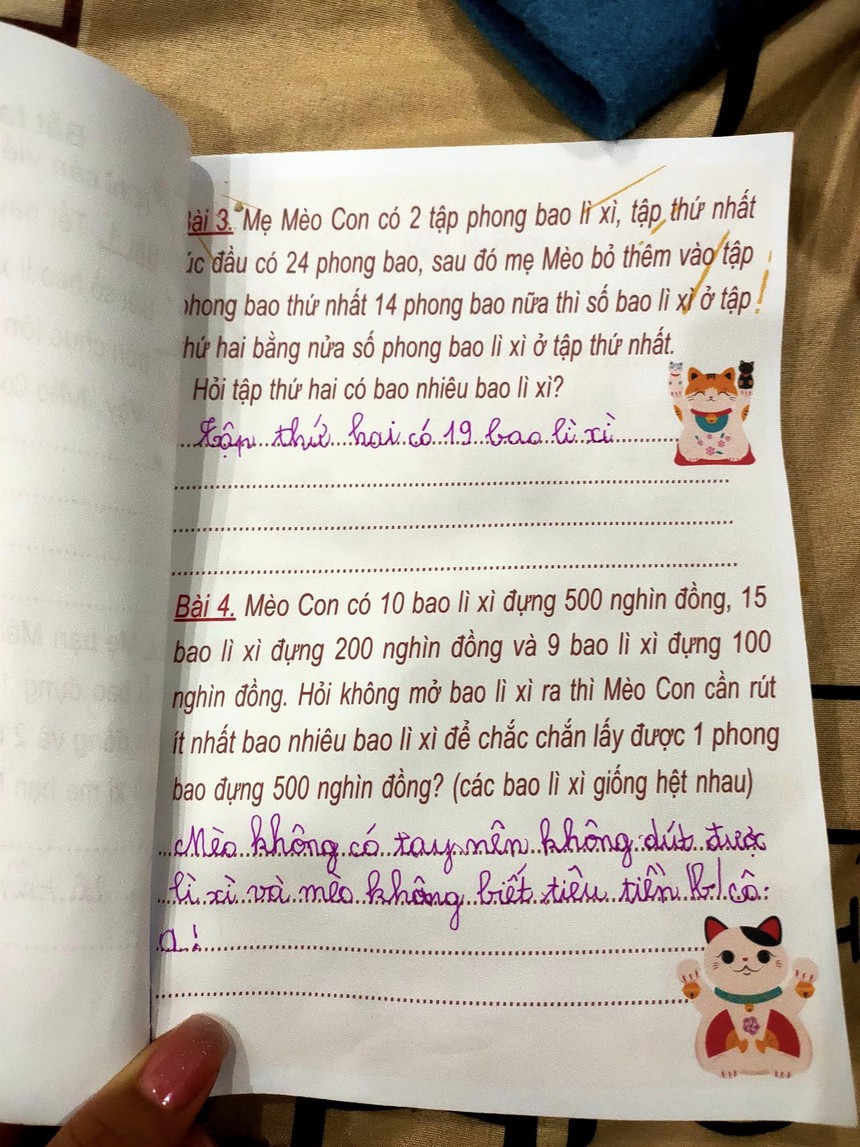 Bài 3. Mẹ Mèo Con có 2 tập phong bao lì xì, tập thứ nhất
úc đầu có 24 phong bao, sau đó mẹ Mèo bỏ thêm vào tập
phong bao thứ nhất 14 phong bao nữa thì số bao lì xì ở tập
hứ hai bằng nửa số phong bao lì xì ở tập thứ nhất.
Hỏi tập thứ hai có bao nhiêu bao lì xì?
Tập thứ hai có 19 bao lì xì
Bài 4. Mèo Con có 10 bao lì xì đựng 500 nghìn đồng, 15
bao lì xì đựng 200 nghìn đồng và 9 bao lì xì đựng 100
nghìn đồng. Hỏi không mở bao lì xì ra thì Mèo Con cần rút
ít nhất bao nhiêu bao lì xì để chắc chắn lấy được 1 phong
bao đựng 500 nghìn đồng? (các bao lì xì giống hệt nhau)
Mèo không có tay nên không dút được
lì xì và mèo không biết tiêu tiền cô
ạ!